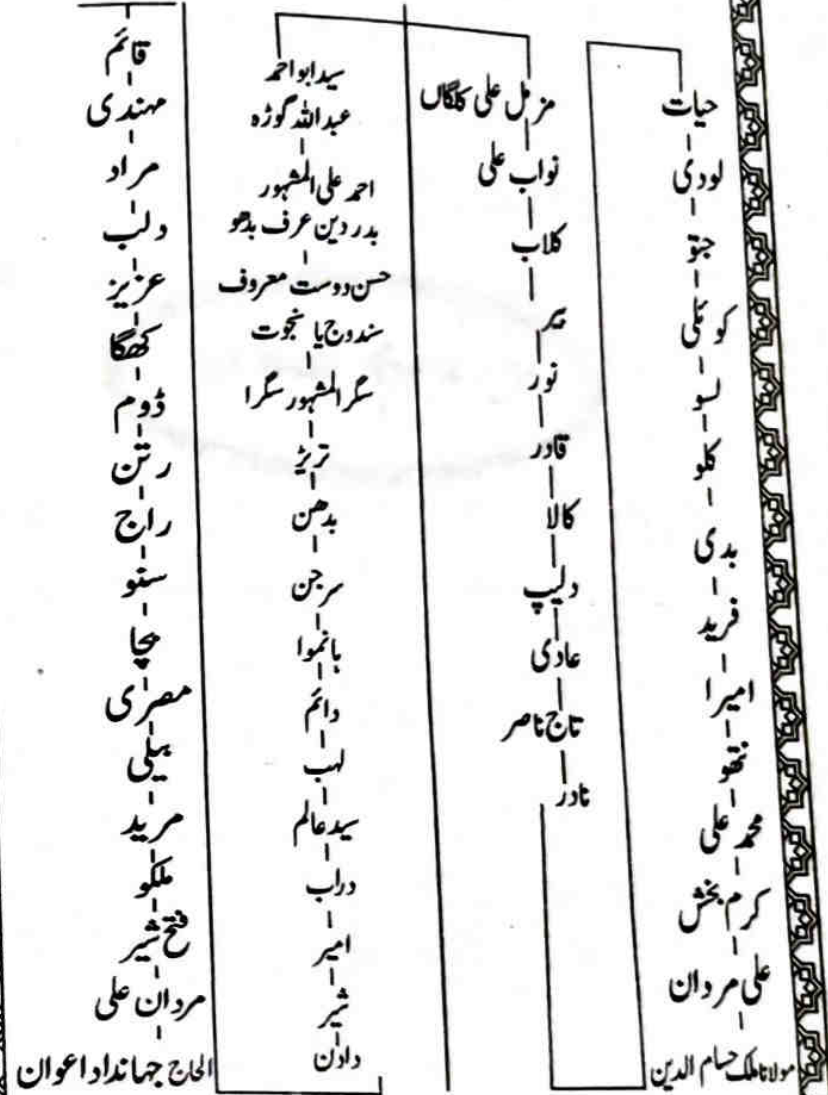 حیات
لودی
جتو
کوئلی
لسو
کلو
بدی
فرید
امیرا
نتھو
محمد علی
کرم بخش
علی مردان
مولانا ملک حسام الدین
مزمل علی کلگاں
نواب علی
کلاب
بیر
نور
قادر
کالا
دلیپ
عادی
تاج ناصر
نادر
سید ابو احمد
عبداللہ گوڑہ
احمد علی المشہور
بدر دین عرف بدھو
حسن دوست معروف
سندوج یا نجوت
سگر المشہور سگرا
تریڑ
بدھن
سرجن
ہانموا
دائم
لہب
سید عالم
دراب
امیر
شیر
دادن
قائم
مہندی
مراد
دلب
عزیز
کھگا
ڈوم
رتن
راج
سنو
بچا
مصری
بیلی
مرید
ملکو
فتح شیر
مردان علی
الحاج جہانداد اعوان